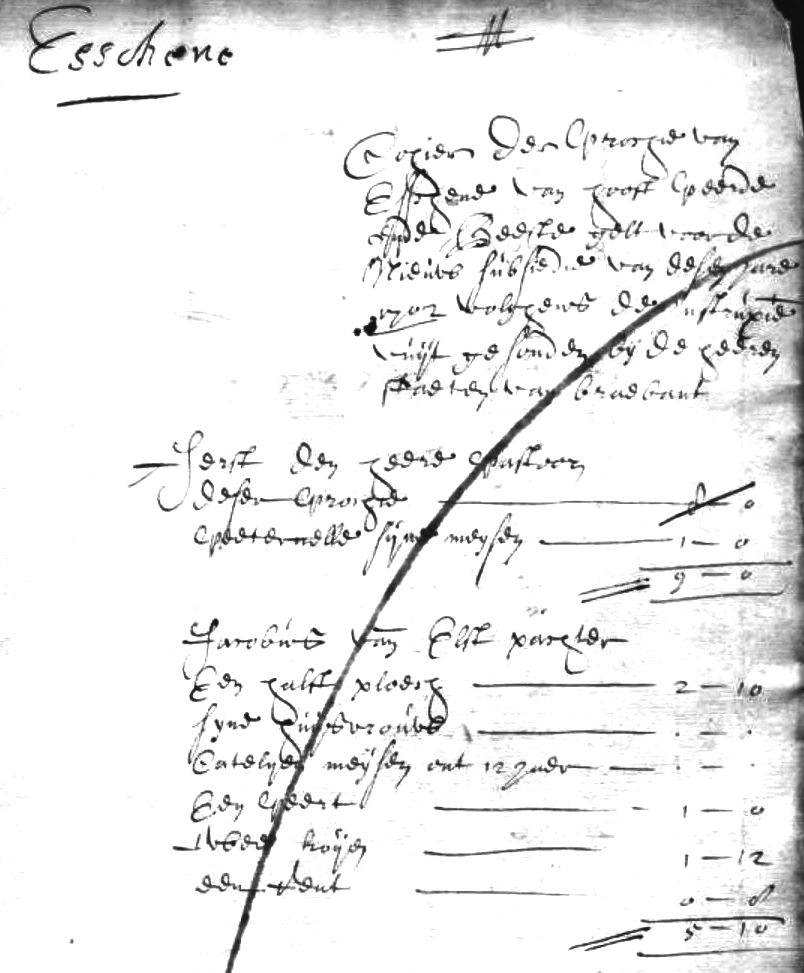 Esschene
Copien der Prochie van
Esschene van hooft peerde
ende Beeste gelt voor de
Nieuwe subsidie van desen jare
1702 volghens de instructie
vuijt gesonden by de heeren
staeten van brabant
Ierst den heere Pastoor
deser Prochie 8 – 0
Peeternelle syne meysen 1 – 0
9 – 0
Jacobus van Elst pachter
Een halff ploech 2 – 10
syne huijsvrouwe . – .
Catelyn meysen out 12 jaer . – .
Een Peert 1 – 0
twee koijen 1 – 12
een 0 – 8
5 – 10